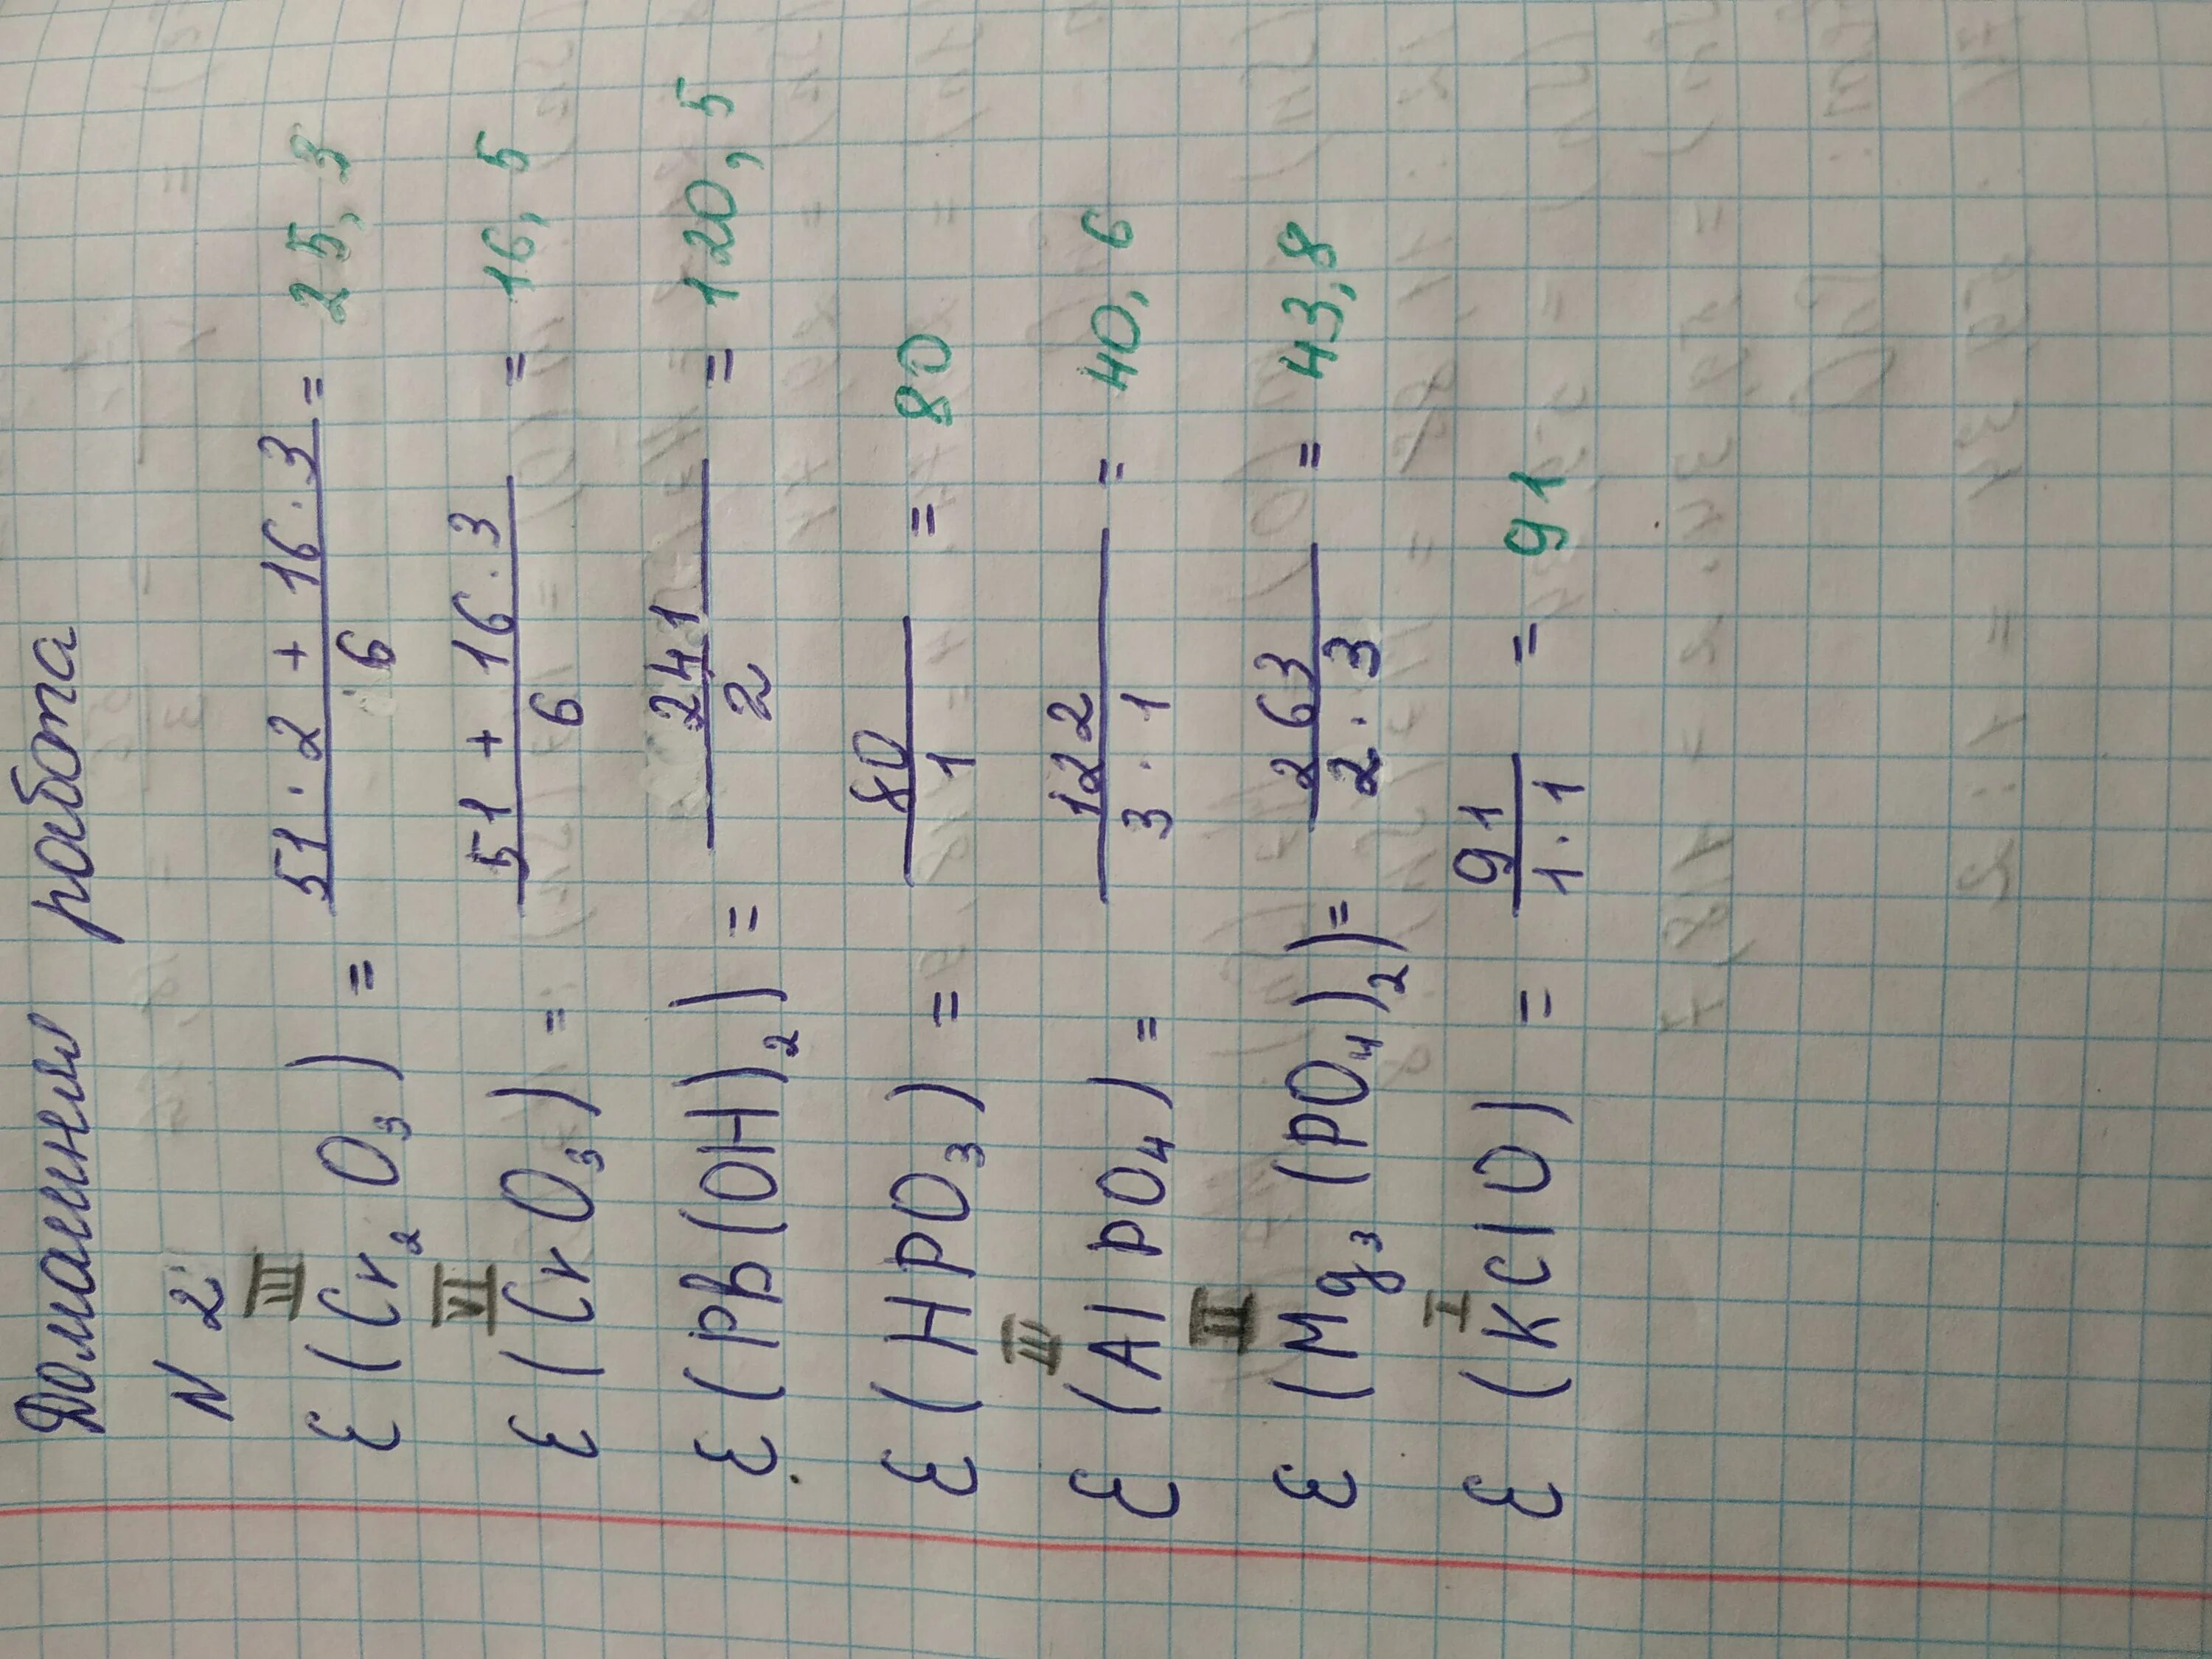 Домашняя работа
N 2
III
Ɛ (Cr₂O₃) = 51·2 + 16·3 / 6 = 25,3
VI
Ɛ (CrO₃) = 51 + 16·3 / 6 = 16,5
Ɛ (Pb(OH)₂) = 241 / 2 = 120,5
Ɛ (HPO₃) = 80 / 1 = 80
III
Ɛ (AlPO₄) = 122 / 3·1 = 40,6
II
Ɛ (Mg₃(PO₄)₂) = 263 / 2·3 = 43,8
I
Ɛ (KClO) = 91 / 1·1 = 91